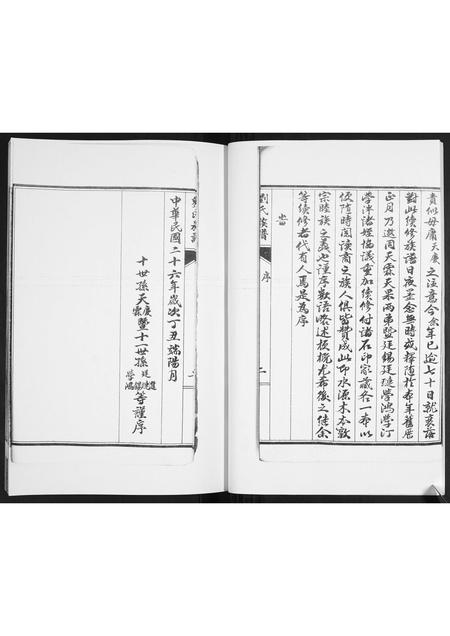 貴似毋庸天庚之注意今余年已逾七十日就衰落
對此續修族譜日夜罣念無時或釋隨於本年舊曆
正月乃邀同天霖天果兩弟暨廷錫廷璉學鴻學汀
學泮諸姪協議重加續修付諸石印家藏各一本以
便隨時閱讀斋之族人俱皆贊成此亦水源木本敦
宗睦族之義也謹序數語略述梗概尤希後之繼余
等續修者代有人焉是為序
劉氏族譜
序
二
中華民國二十六年歲次丁丑端陽月
十世孫天庚霖暨十一世孫廷璉錫學鴻等謹序